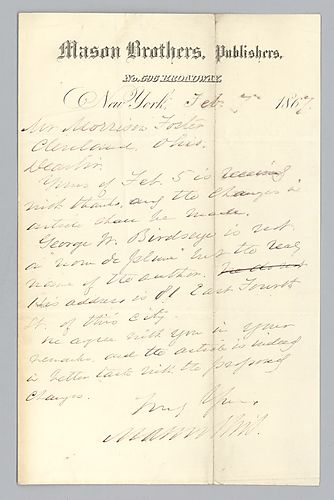 Mason Brothers, Publishers,
No. 596 BROADWAY,
New York, Feb 7th 1867.
Mr Morrison Foster
Cleveland Ohio.
Dear Sir
Yours of Feb. 5 is received
with thanks, and the changes in
article shall be made.
George W. Birdseye is not
a "nom de plume" but the real
name of the author.
His address is 81 East Fourth
St. of this city.
We agree with you in your
remarks, and the article is indeed
in better taste with the proposed
changes.
Very Yours,
Mason Bros.